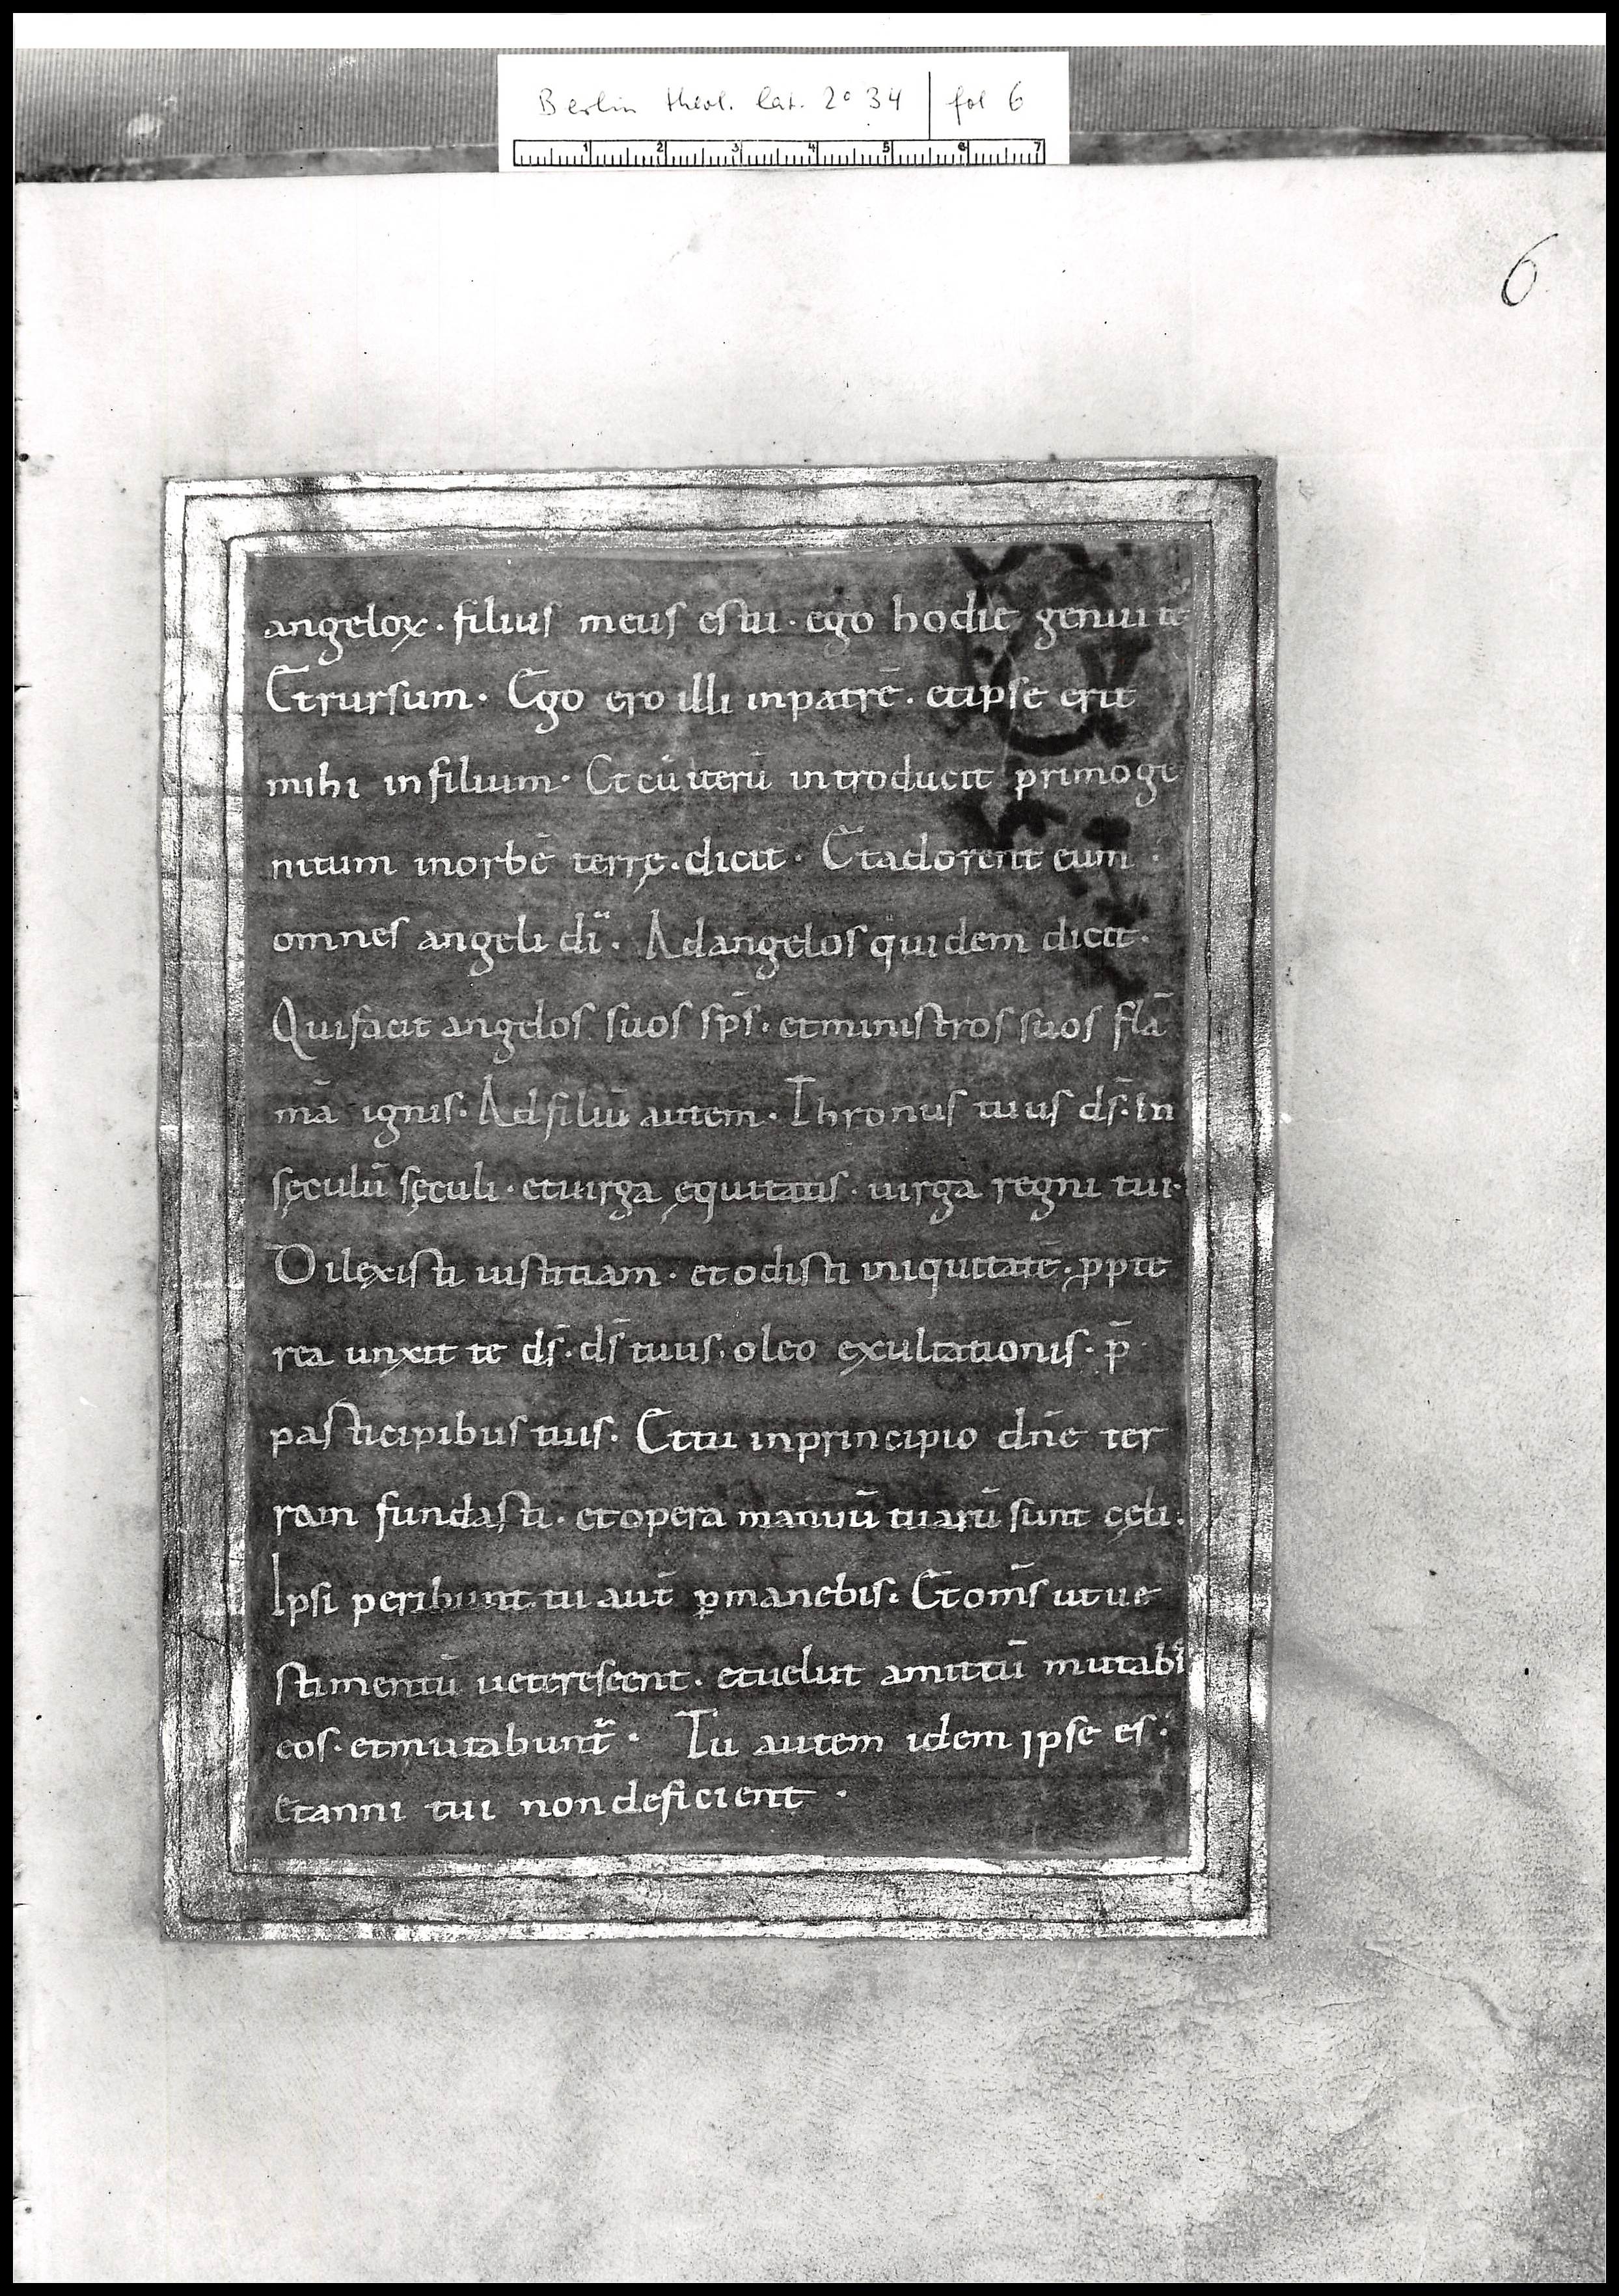 Berlin theol. lat. 2° 34 | fol 6
1 2 3 4 5 6 7
6
angeloꝝ · filius meus es tu · ego hodie genui te
Et rursum · Ego ero illi inpatrē · et ipse erit
mihi in filium · Et cū iterū introducit primoge
nitum inorbē terrę · dicit · Et adorent eum ·
omnes angeli dī · Ad angelos quidem dicit ·
Qui facit angelos suos sp̄s · et ministros suos flā
mā ignis · Ad filiū autem · Thronus tuus ds̄ · in
sęculū sęculi · et uirga ęquitatis · uirga regni tui ·
Dilexisti iustitiam · et odisti iniquitatē · ꝓpte
rea unxit te ds̄ · ds̄ tuus · oleo exultationis · p̄
pasticipibus tuis · Et tu inprincipio dn̄e ter
ram fundasti · et opera manuū tuarū sunt cęli ·
Ipsi peribunt tu aut̄ ꝑmanebis · Et om̄s ut ue
stimentū ueterescent · et uelut amittū mutabis
eos · et mutabunt᷑ · Tu autem idem ipse es ·
Et anni tui non deficient ·